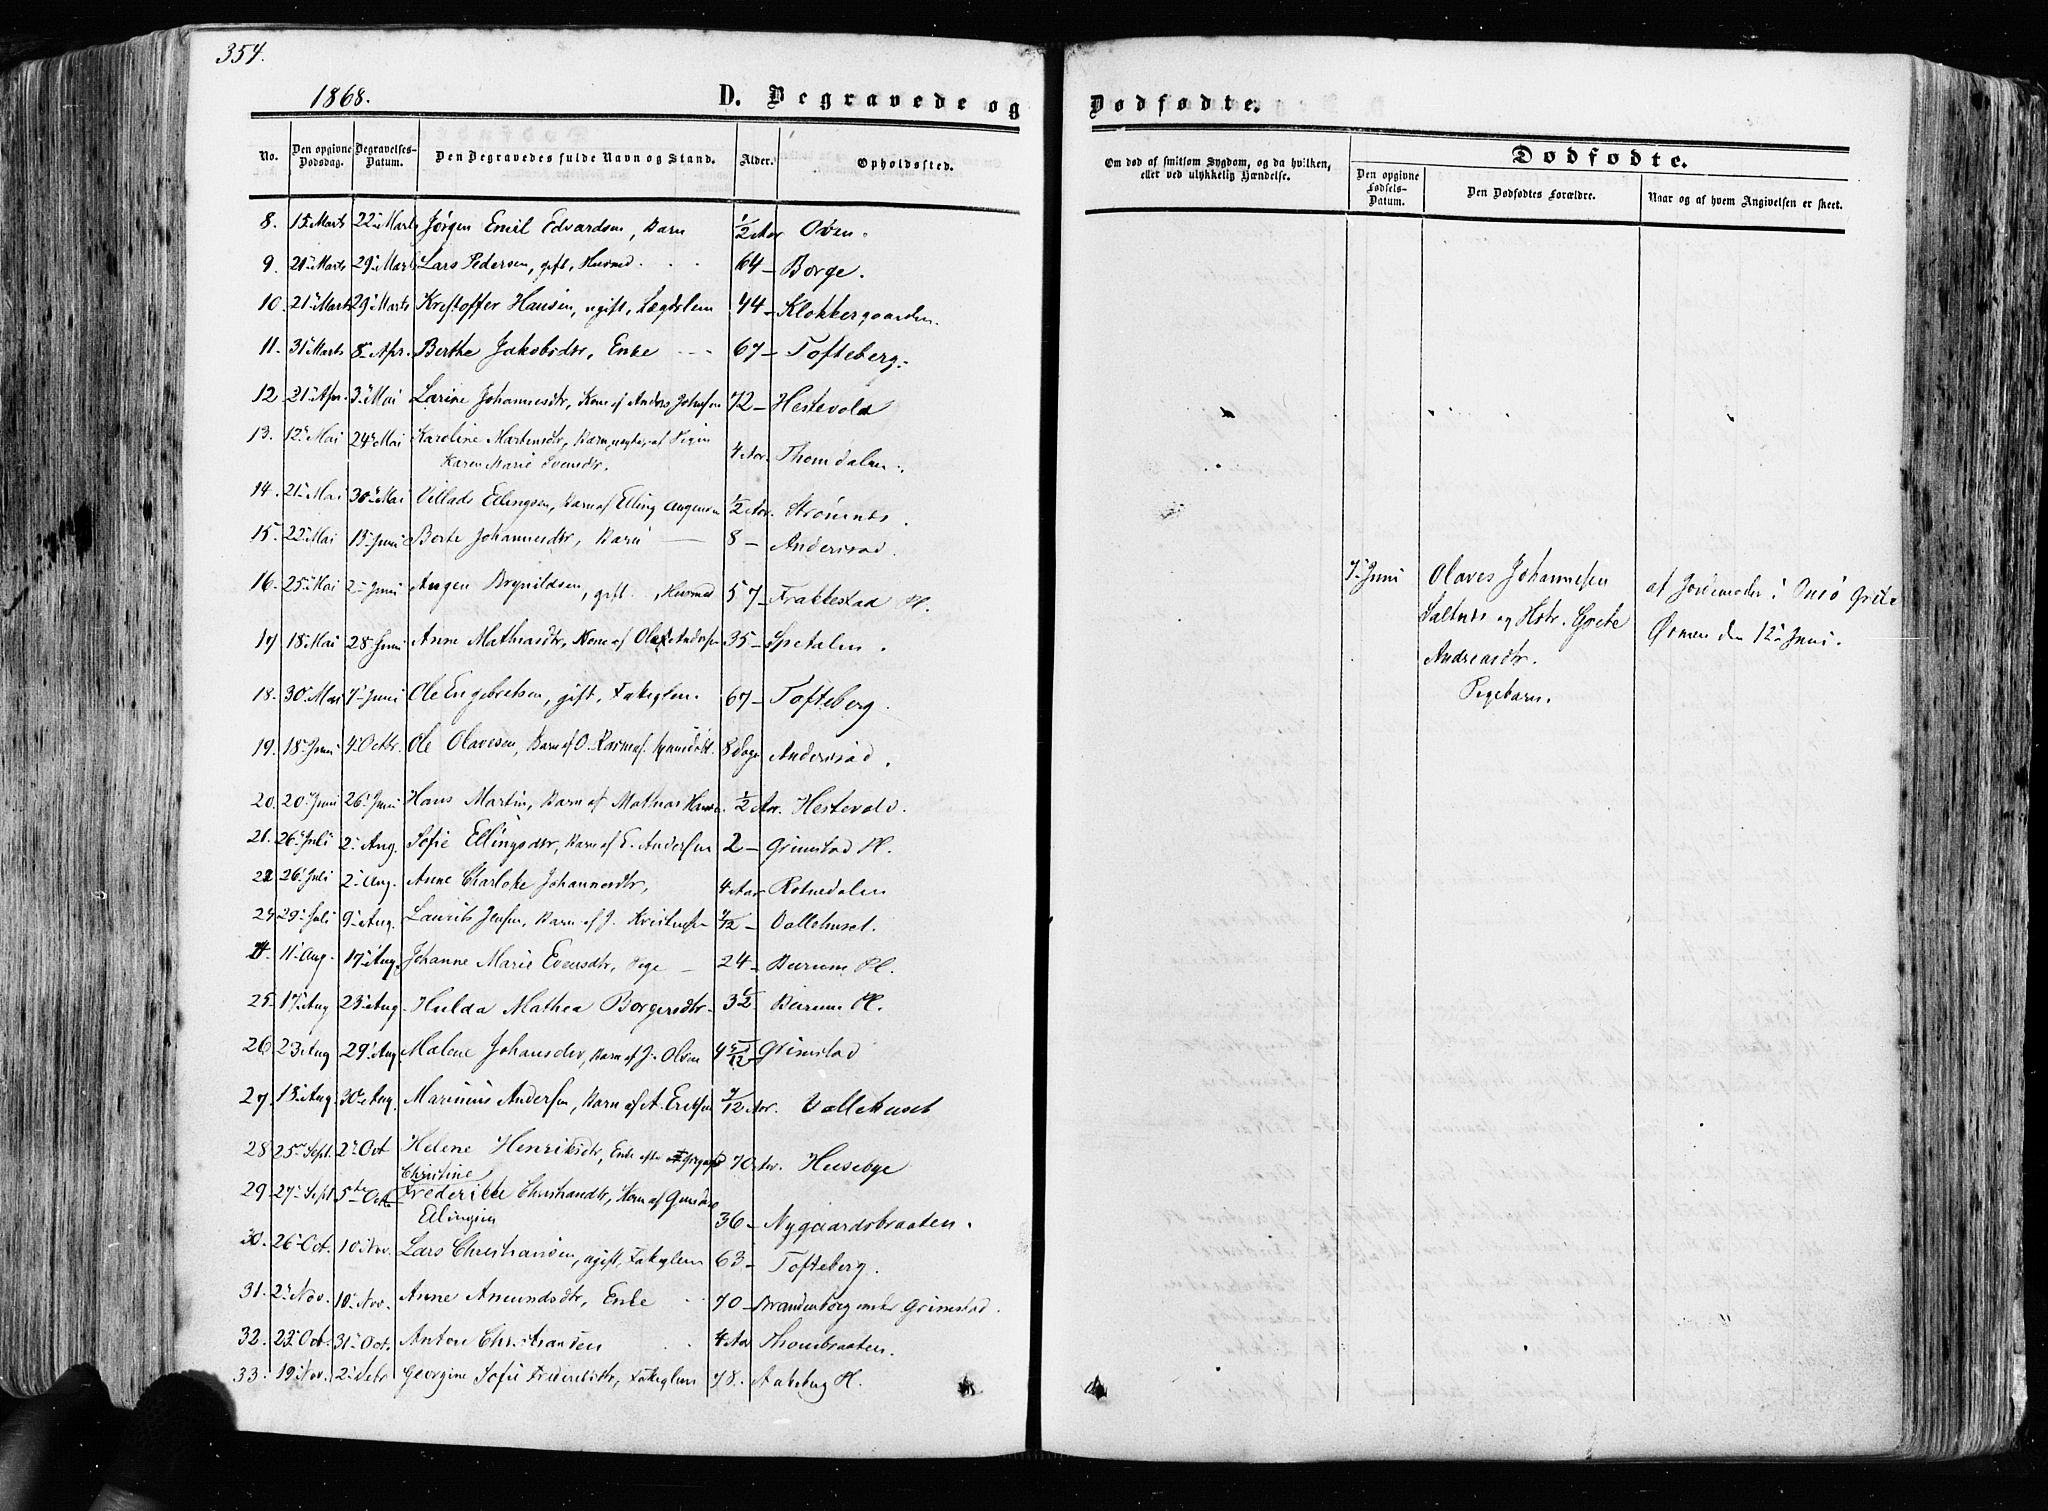 354.
1868.
D. Begravede og
Dødfødte.
No. Den opgivne Dødsdag. Begravelses-Datum. Den Begravedes fulde Navn og Stand. Alder. Opholdssted.
Om død af smitsom Sygdom, og da hvilken, eller ved ulykkelig Hændelse.
Dødfødte.
Den opgivne Fødsels-Datum. Den Dødfødtes Forældre. Naar og af hvem Angivelsen er skeet.
8. 15. Marts 22. Marts Jørgen Emil Edvardsen, Barn 1/2 Aar Oven.
9 21. Marts 29. Marts Lars Pedersen, gift, Husmd. 64 - Borge.
10. 21. Marts 29. Marts Kristoffer Hansen, ugift, Lægdslem 44 - Klokkergaarden.
11. 31. Marts 8. Apr. Berthe Jakobsdtr, Enke 67 - Tofteberg.
12. 21. Apr. 3. Mai Larine Johannesdtr, Kone af Anders Johnsen 72 - Hestevold
13. 12. Mai 24. Mai Karoline Martensdtr, Barn, uægte, af Pigen
Karen Marie Svensdtr. 4 Aar. Thomdalen.
14. 21. Mai 30. Mai Villads Ellingsen, Barn af Elling Augensen 1/2 Aar. Strømnes.
15. 22. Mai 13. Juni Berte Johannesdtr, Barn 8 - Andersrød.
16. 25. Mai 2. Juni Augen Brynildsen, gift, Husmd 57 - Frakkestad Pl.
17 18. Mai 28. Juni Anne Mathiasdtr, Kone af Ola Andersen 35 - Spetalen.
18. 30. Mai 7. Juni Ole Engebretsen, gift, Fattiglem. 67 - Tofteberg.
19. 18. Juni 4. Octbr. Ole Olavesen, Barn af O. 8 Dage Andersrød.
20. 20. Juni 26. Juni Hans Martin, Barn af Mathias Hansen 1/2 Aar. Hestevold.
21. 26. Juli 2. Aug. Sofie Ellingsdtr, Barn af E. Andersen 2 - Grimstad Pl.
22 26. Juli 2. Aug. Anne Charlotte Johannesdtr, 4 Aar Rotnedalen
23 29. Juli 9. Aug. Laurits Jensen, Barn af J. Kristensen 7/12 - Vallehuset.
24 11. Aug. 17. Aug. Johanne Marie Evensdtr, Pige 24 - Burum Pl.
25. 17. Aug 23. Aug. Hulda Mathea Borgersdtr. 3 1/2 Burum Pl.
26 23 Aug 29. Aug. Malene Johansdtr, Barn af J. Olsen 4 5/12 - Grimstad
27. 13. Aug 30. Aug. Marinius Andersen, Barn af A. Eriksen 7/12 Aar. Vallehuset
28 25. Sept. 2. Oct Helene Henriksdtr, Enke efter 70 Aar. Husebye
29 27. Sept 5te Octb Christine
Frederikke Christiansdtr, Kone af
Ellingsen 36 - Nygaardsbraaten.
30. 26. Oct. 10. Nov. Lars Christiansen, ugift, Fattiglem 63 - Tofteberg.
31. 2. Nov. 10. Nov. Anne Amundsdtr, Enke 70 - Brandenborg under Grimstad.
32. 23. Oct. 31. Oct. Anton Christiansen 4 Aar Thombraaten.
33. 19. Nov. 2. Georgine Sofie Frederiksdtr, Fattiglem 78. Pl.
7. Juni Olaves Johannesen
Saltnes og Hstr. Grete
Andreasdtr.
Pigebarn.
af Jordemoder i Onsø Grete
Ørmen den 12. Juni.